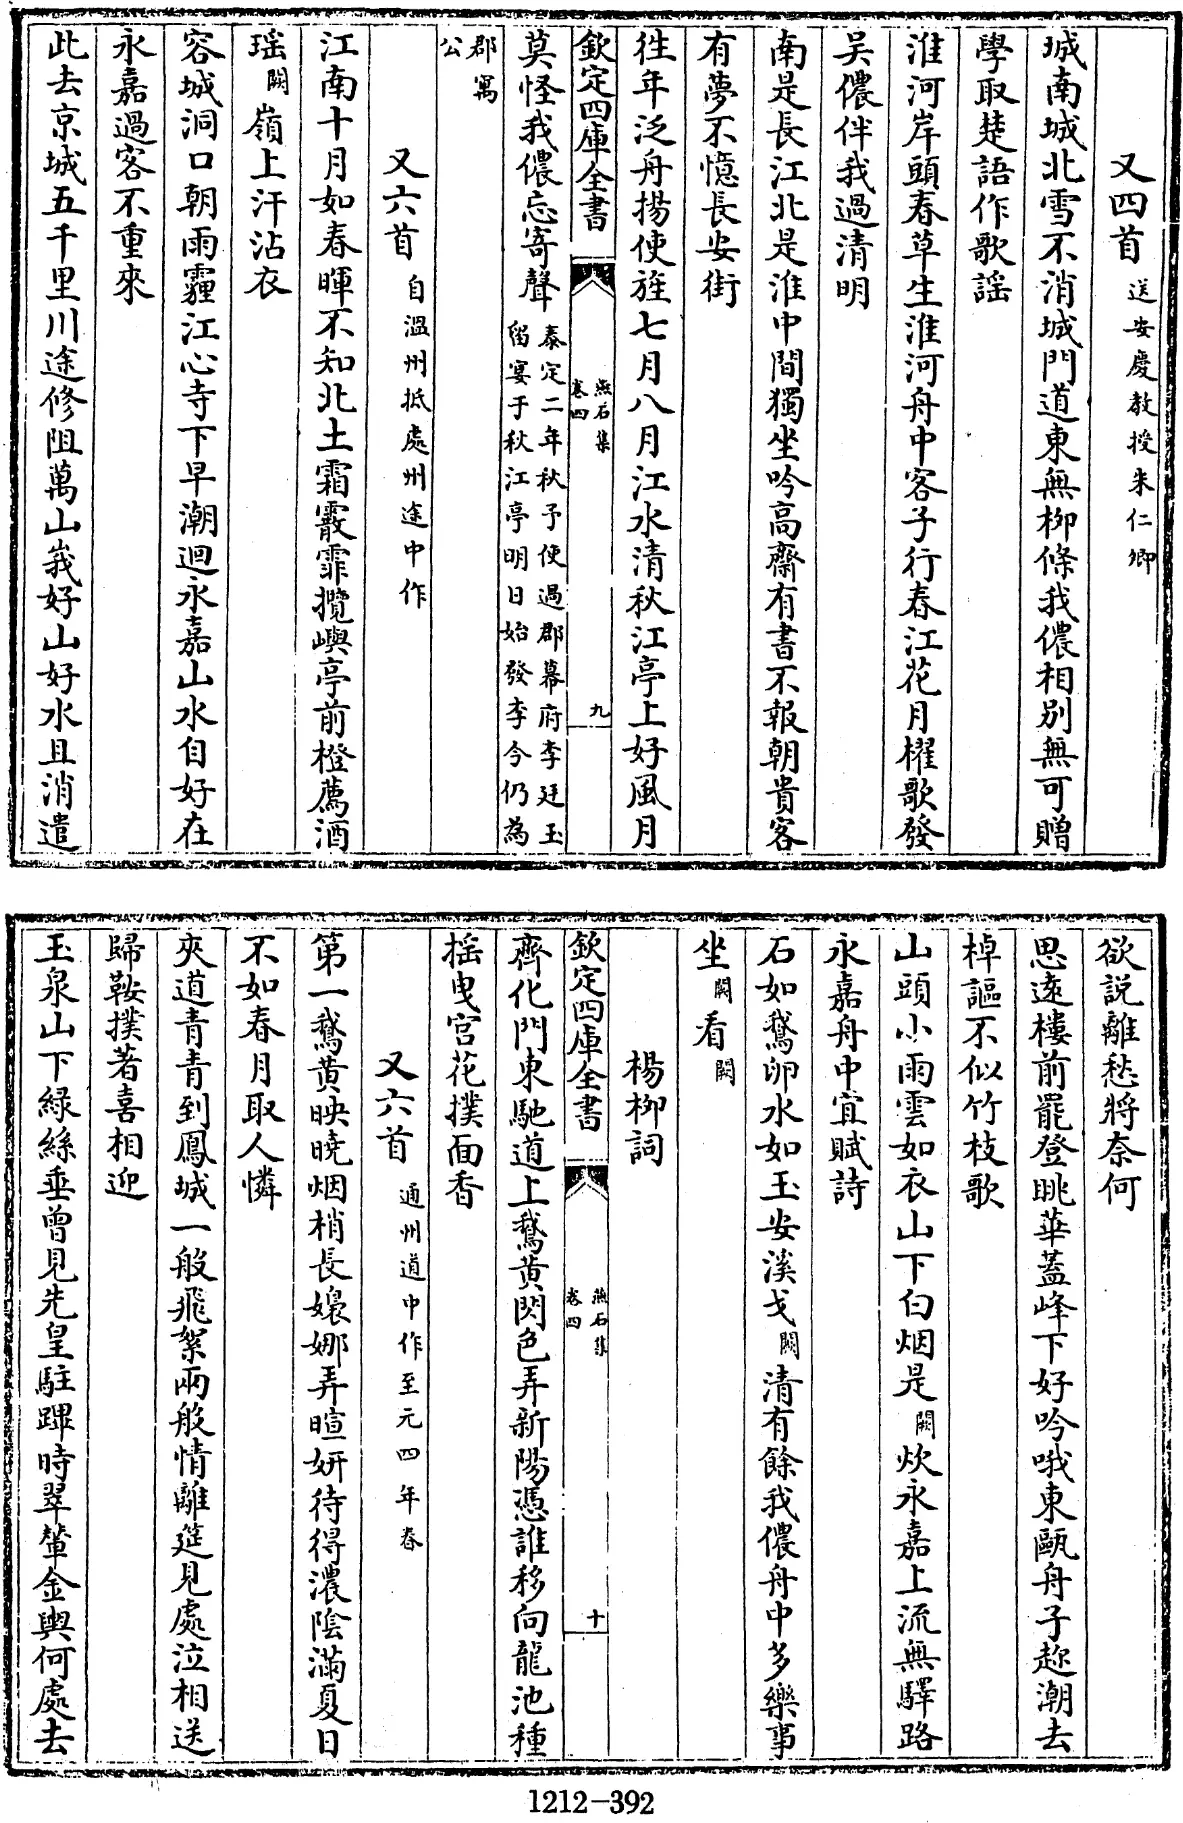 又四首送安慶教授朱仁卿
城南城北雪不消城門道東無栁條我儂相別無可贈
學取楚語作歌謡
淮河岸頭春草生淮河舟中客子行春江花月櫂歌發
吴儂伴我過清明
南是長江北是淮中間獨坐吟高齋有書不報朝貴客
有夢不憶長安街
往年泛舟揚使旌七月八月江水清秋江亭上好風月
欽定四庫全書
燕石集
卷四
九
莫怪我儂忘寄聲泰定二年秋予使過郡幕府李廷玉
留宴于秋江亭明日始發李今仍為
郡寓
公
又六首自溫州抵處州途中作
江南十月如春暉不知北土霜霰霏攬嶼亭前橙薦酒
瑶闕嶺上汗沾衣
容城洞口朝雨霾江心寺下早潮迴永嘉山水自好在
永嘉過客不重來
此去京城五千里川途修阻萬山峩好山好水且消遣
欲説離愁將奈何
思遠樓前罷登眺華蓋峰下好吟哦東甌舟子趂潮去
棹謳不似竹枝歌
山頭小雨雲如衣山下白烟是闕炊永嘉上流無驛路
永嘉舟中宜賦詩
石如鵞卵水如玉安溪戈闕清有餘我儂舟中多樂事
坐闕看闕
楊栁詞
欽定四庫全書
燕石集
卷四
十
齊化門東馳道上鵞黄閃色弄新陽憑誰移向龍池種
揺曳宫花撲面香
又六首通州道中作至元四年春
第一鵞黄映曉烟梢長嬝娜弄暄妍待得濃陰滿夏日
不如春月取人憐
夾道青青到鳳城一般飛絮兩般情離筵見處泣相送
歸鞍撲著喜相迎
玉泉山下緑絲垂曾見先皇駐蹕時翠輦金輿何處去
1212-392